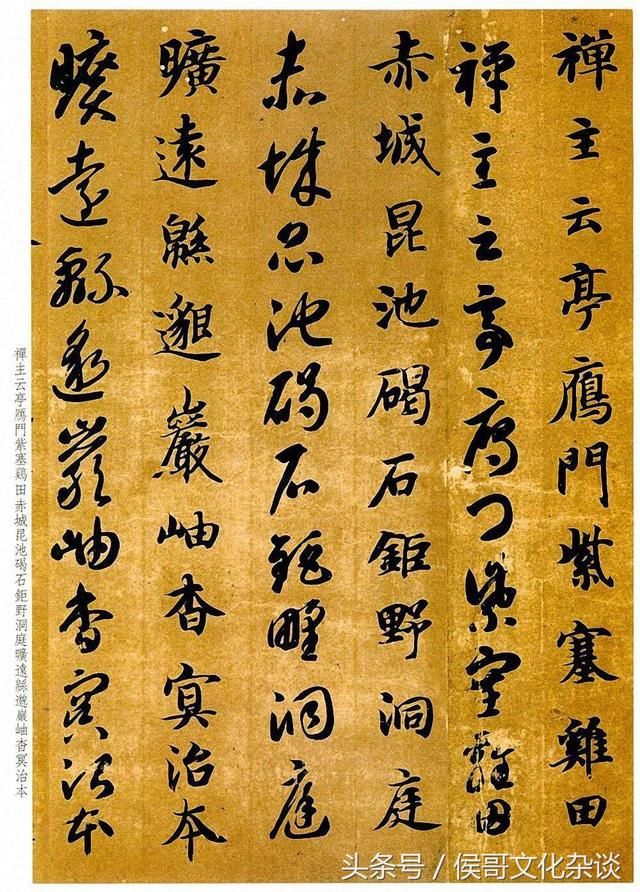 禪主云亭鴈門紫塞雞田
禪主云亭鴈門紫塞雞田
赤城昆池碣石鉅野洞庭
赤城昆池碣石鉅野洞庭
曠遠緜邈巖岫杳冥治本
曠遠緜邈巖岫杳冥治本
禪主云亭鴈門紫塞鷄田赤城昆池碣石鉅野洞庭曠遠緜邈巖岫杳冥治本
头条号 / 侯哥文化杂谈